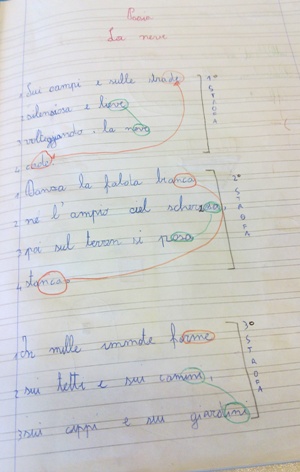 Poesia
La neve
1 Sui campi e sulle strade
2 silenziosa e lieve
3 volteggiando, la neve
4 cade.
1° STROFA
1 Danza la falda bianca
2 ne l'ampio ciel scherzosa,
3 poi sul terren si posa
4 stanca.
2° STROFA
1 In mille immote forme
2 sui tetti e sui camini,
3 sui cippi e sui giardini
3° STROFA